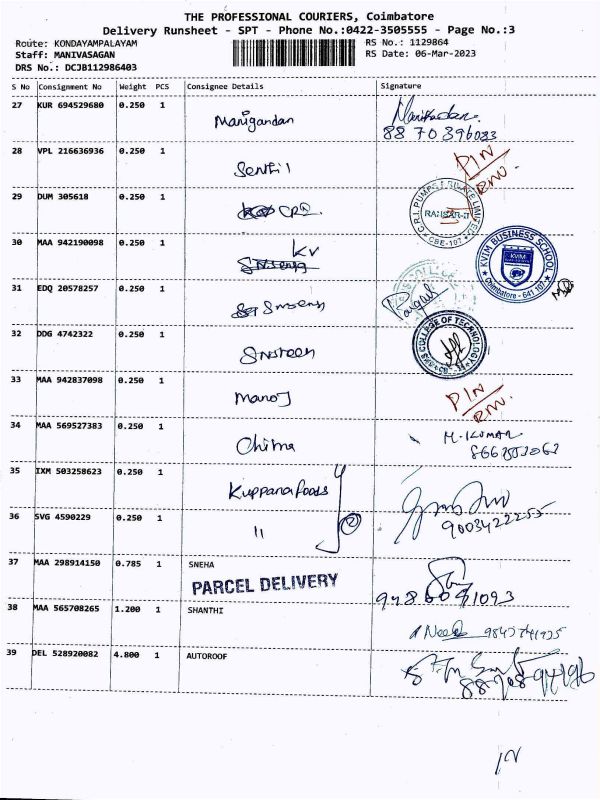 THE PROFESSIONAL COURIERS, Coimbatore
Delivery Runsheet - SPT - Phone No.:0422-3505555 - Page No.:3
Route: KONDAYAMPALAYAM RS No.: 1129864
Staff: MANIVASAGAN RS Date: 06-Mar-2023
DRS No.: DCJB112986403
S No Consignment No Weight PCS Consignee Details Signature
27 KUR 694529680 0.250 1 Manigandan
28 VPL 216636936 0.250 1 Senthil PIN
29 DUM 305618 0.250 1 C.R.I. PUMPS PRIVATE LIMITED CBE-107
30 MAA 942190098 0.250 1 KV KVIM BUSINESS SCHOOL KVIM Coimbatore - 641 107
31 EDQ 20578257 0.250 1
32 DDG 4742322 0.250 1 COLLEGE OF TECHNOLOGY
33 MAA 942837098 0.250 1 Manoj PIN
34 MAA 569527383 0.250 1 Chitra M. KUMAR
35 IXM 503258623 0.250 1 Kuppana foods
36 SVG 4590229 0.250 1 11 2 9003422255
37 MAA 298914150 0.785 1 SNEHA
PARCEL DELIVERY
38 MAA 565708265 1.200 1 SHANTHI
39 DEL 528920082 4.800 1 AUTOROOF